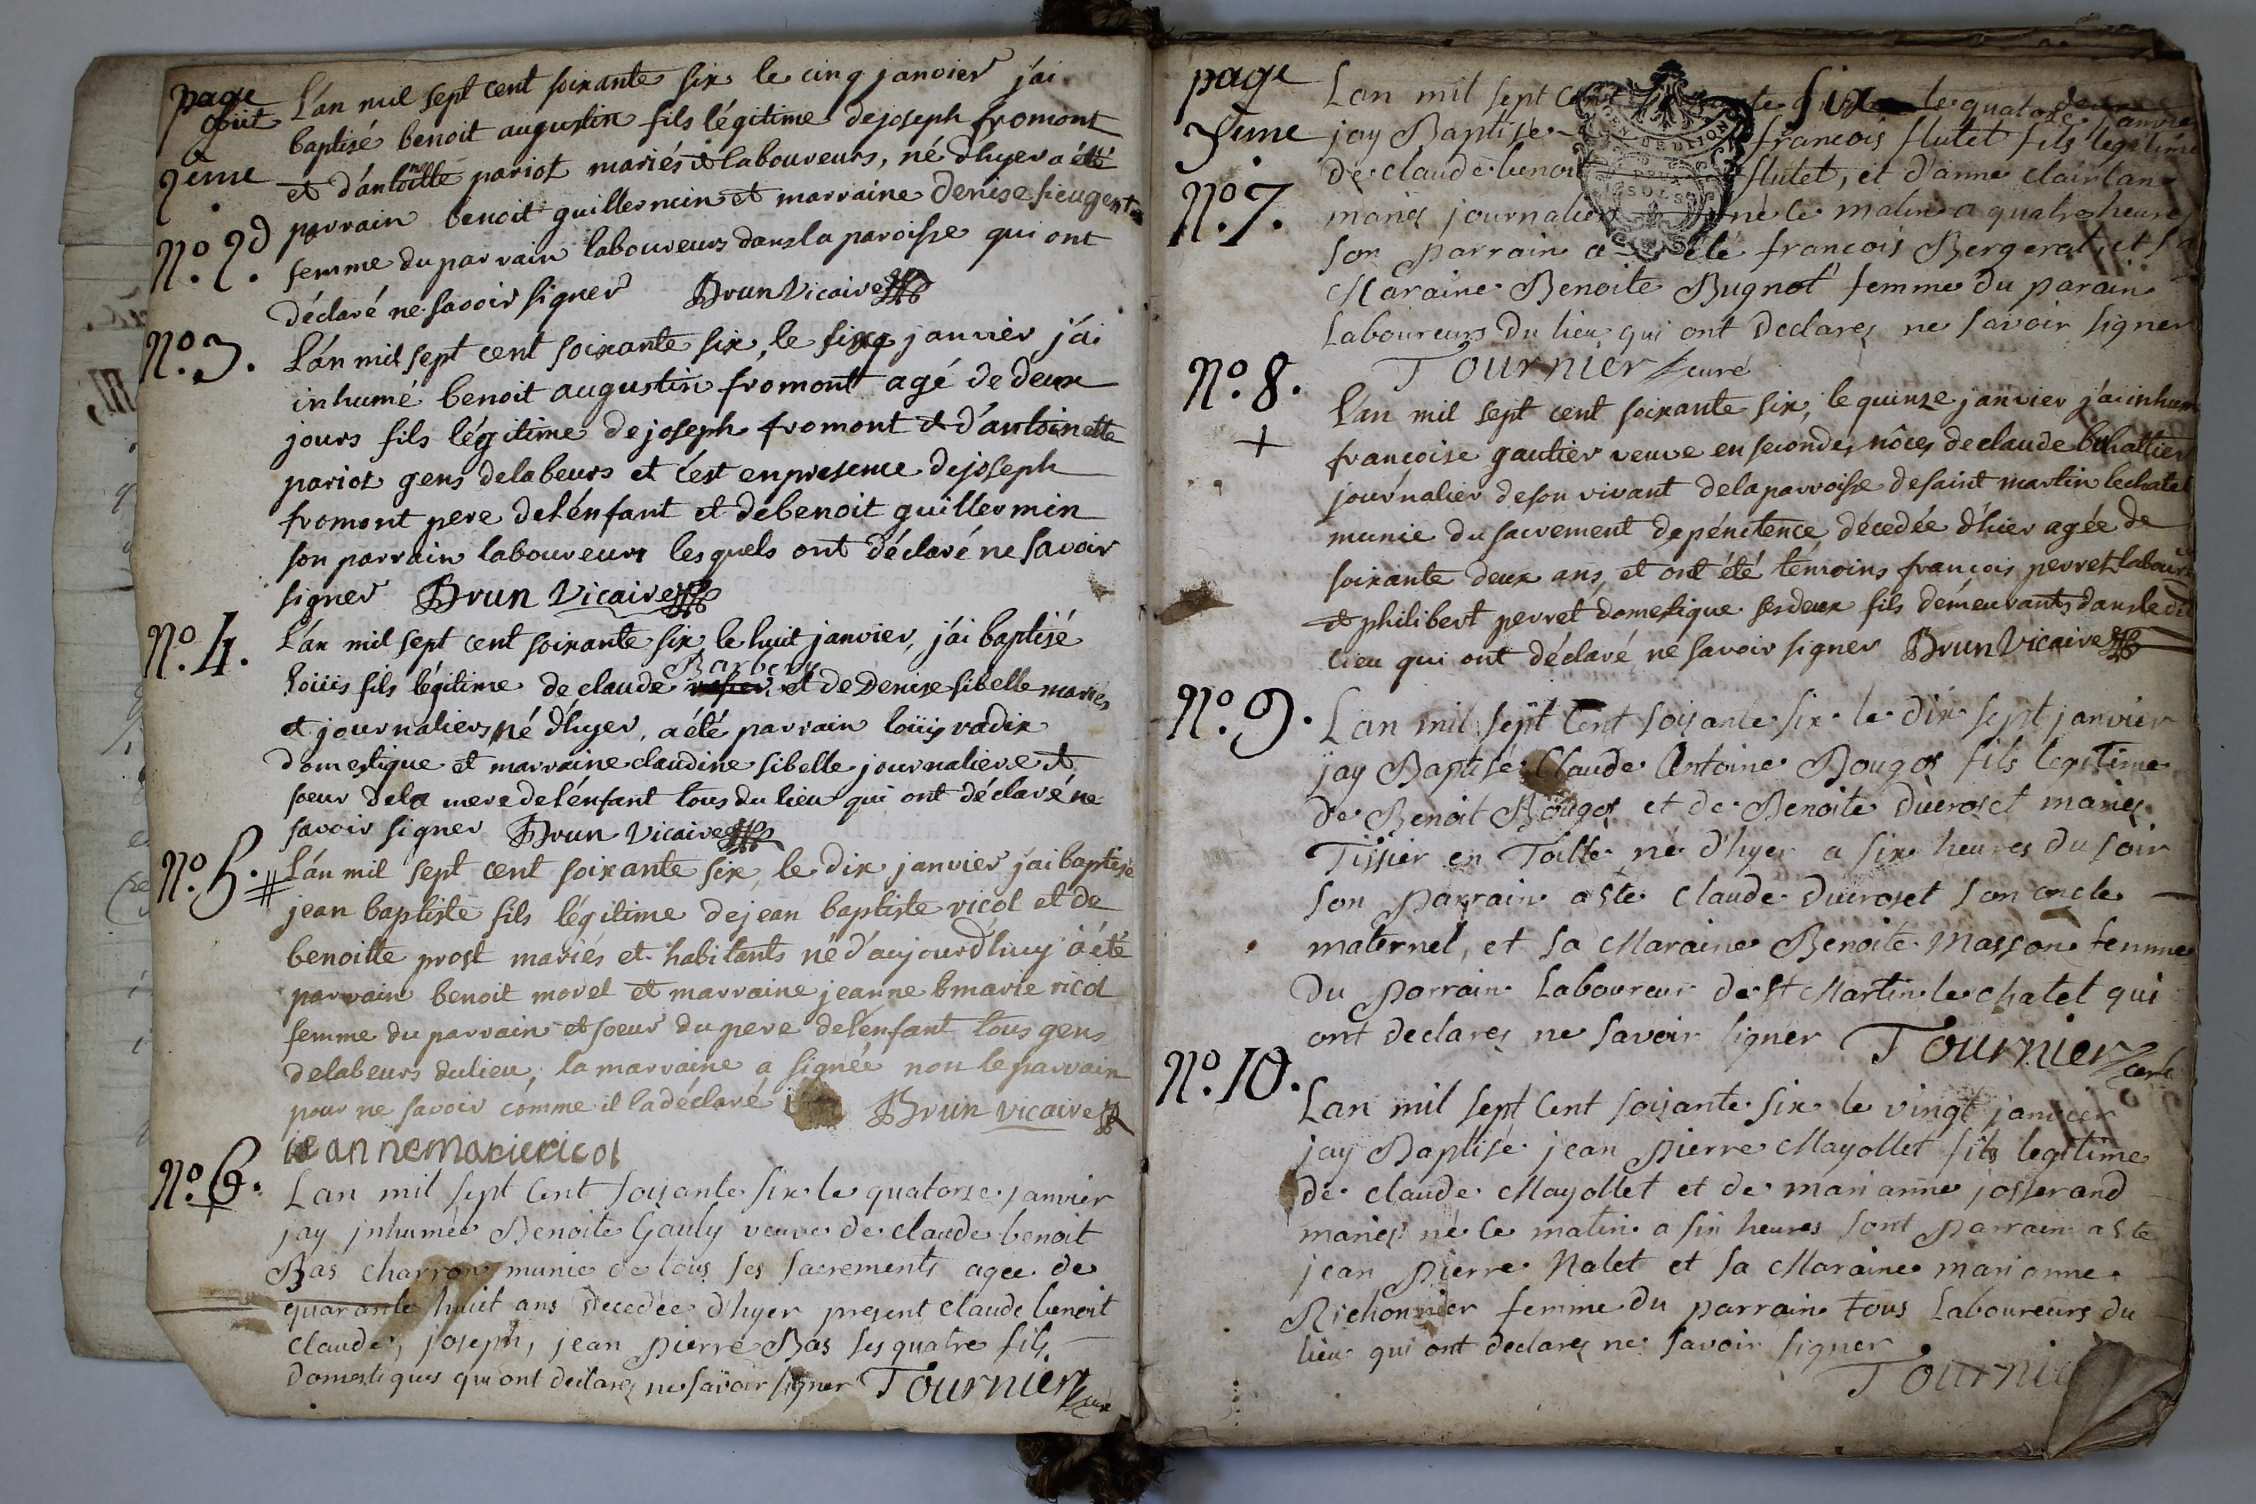 page
2eme
L'an mil sept cent soixante six le cinq janvier j'ai
baptisé benoit augustin fils légitime de joseph fromont
et d'antoinette pariot mariés et laboureurs, né d'hyer a été
parrain benoit guillermin et marraine denise
femme du parrain laboureurs dans la paroisse qui ont
déclaré ne savoir signer Brun Vicaire
N.o 2d
N.o 3.
L'an mil sept cent soixante six, le six janvier j'ai
inhumé benoit augustin fromont agé de deux
jours fils légitime de joseph fromont et d'antoinette
pariot gens de labeurs et c'est en presence de joseph
fromont pere de l'énfant et de benoit guillermin
son parrain laboureurs lesquels ont déclaré ne savoir
signer Brun Vicaire
N.o 4.
L'an mil sept cent soixante six, le huit janvier, j'ai baptisé
loüis fils légitime de claude Barbery et de Denise sibelle mariés
et journaliers, né d'hyer, a été parrain loüis radix
domestique et marraine claudine sibelle journaliere et
soeur de la mere de l'énfant tous du lieu qui ont déclaré ne
savoir signer Brun Vicaire
N.o 5.
L'an mil sept cent soixante six, le dix janvier j'ai baptisé
jean baptiste fils légitime de jean baptiste ricol et de
benoitte prost mariés et habitants né d'aujourd'huy a été
parrain benoit morel et marraine jeanne marie ricol
femme du parrain et soeur du pere de l'enfant tous gens
de labeurs du lieu, la marraine a signée non le parrain
pour ne savoir comme il la déclaré Brun vicaire
jeannemariericol
N.o 6.
Lan mil sept Cent soisante six le quatorse janvier
jay jnhumée Benoite Gauly veuve de claude benoit
Bas charron munie de tous ses sacrements agee de
quarante huict ans decedée d'hyer present Claude benoit
Claude, joseph, jean pierre Bas ses quatre fils
Domestiques qui ont declares ne savoir signer Tournier curé
page
3eme
N.o 7.
Lan mil sept cent six le quatorse janvier
jay Baptisé francois flutet fils legitime
de claude benoit flutet, et d'anne
mariés journaliers né le matin a quatre heures
son parrain a été francois Bergerat et sa
Maraine Benoite Bugnot femme du parain
Laboureurs du lieu qui ont declares ne savoir signer
Tournier curé
N.o 8.
+
L'an mil sept cent soixante six, le quinze janvier j'ai inhumé
françoise gautier veuve en secondes nôces de claude
journalier de son vivant de la parroisse de saint martin le chatel
munie du sacrement de pénitence décedée d'hier agée de
soixante deux ans, et ont été témoins françois perret laboureur
et philibert perret domestique ses deux fils démeurants dans le dit
lieu qui ont déclaré ne savoir signer Brun Vicaire
N.o 9.
Lan mil sept Cent soisante six le dix sept janvier
jay Baptisé Claude Antoine Bougos fils legitime
de Benoit Bougos et de Benoite ducroset mariés
Tissier en Toille né d'hyer a six heures du soir
son parrain a ste Claude Ducroset son oncle
maternel, et sa Maraine Benoite Masson femme
du parrain Laboureur de St Martin le chatel qui
ont declares ne savoir signer Tournier curé
N.o 10.
Lan mil sept Cent soisante six le vingt janvier
jay Baptisé jean pierre Mayollet fils legitime
de Claude Mayollet et de marianne josserand
mariés né le matin a six heures sont parrain a ste
jean pierre Nalet et sa Maraine marianne
Richonnier femme du parrain tous Laboureurs du
lieu qui ont declares ne savoir signer